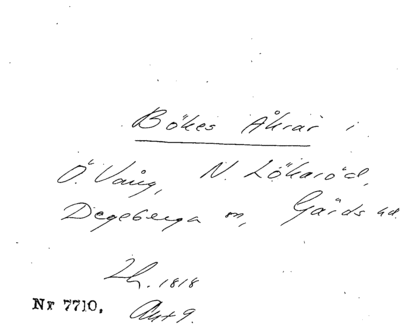 Bökes Åkrar i
Ö. Vång, N. Lökaröd,
Degeberga sn, Gärds hd.
Lh. 1818
Nr 7710. Akt 9.